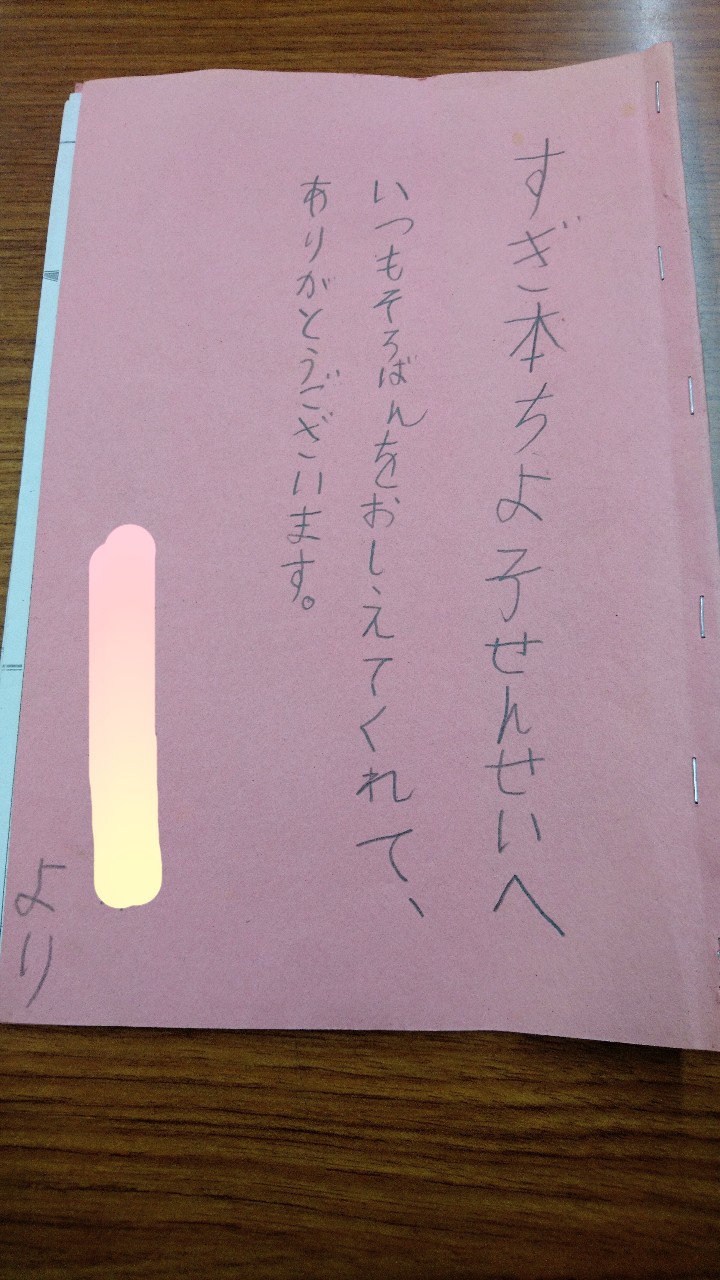 すぎ本ちよ子せんせいへ
いつもそろばんをおしえてくれて、
ありがとうございます。
より